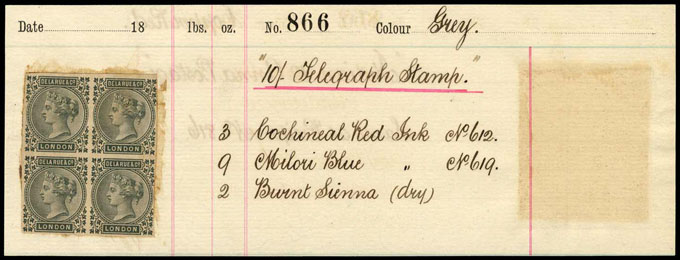 Date 18 lbs. oz. No. 866 Colour Grey.
"10/- Telegraph Stamp."
DE LA RUE & Co DE LA RUE & Co
LONDON LONDON
3 Cochineal Red Ink No 612.
9 Milori Blue " No 619.
DE LA RUE & Co DE LA RUE & Co
2 Burnt Sienna (dry)
LONDON LONDON